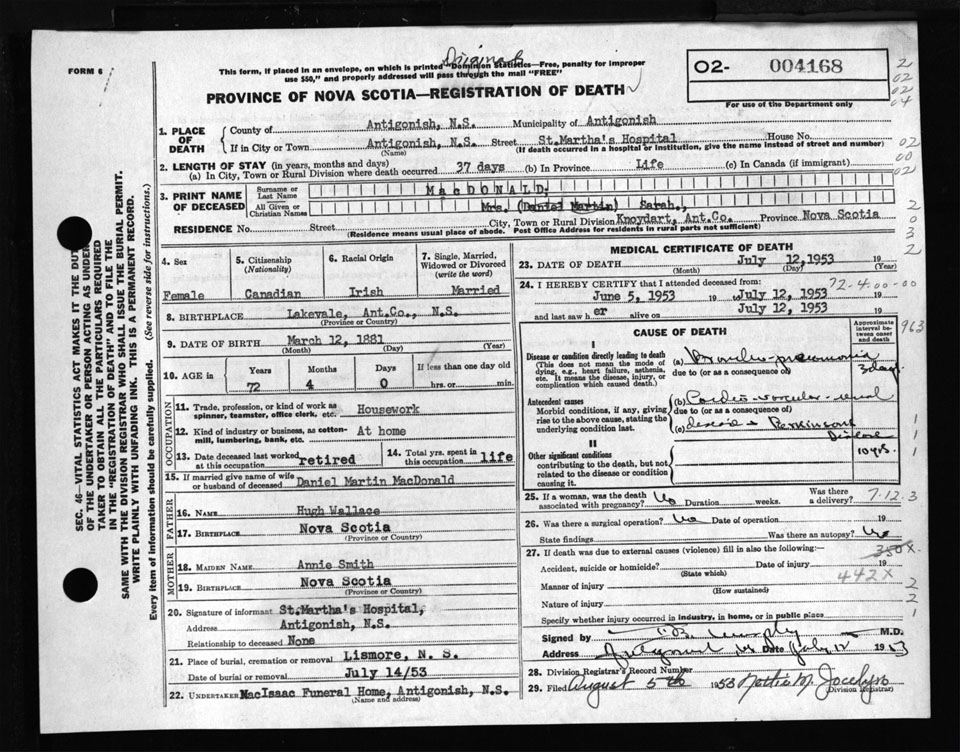 Original
FORM 6
This form, if placed in an envelope, on which is printed "Dominion Statistics—Free, penalty for improper
use $50," and properly addressed will pass through the mail "FREE"
O2- 004168
For use of the Department only
PROVINCE OF NOVA SCOTIA—REGISTRATION OF DEATH
2
02
02
04
02
00
02
2
0
3
2
1. PLACE OF DEATH
County of Antigonish, N.S. Municipality of Antigonish
If in City or Town Antigonish, N.S. Street St.Martha's Hospital House No.
(Name) (If death occurred in a hospital or institution, give the name instead of street and number)
2. LENGTH OF STAY (in years, months and days)
(a) In City, Town or Rural Division where death occurred 37 days (b) In Province Life (c) In Canada (if immigrant)
3. PRINT NAME OF DECEASED
Surname or Last Name MacDONALD.
All Given or Christian Names Mrs. (Daniel Martin) Sarah.,
RESIDENCE No. Street City, Town or Rural Division Knoydart, Ant.Co. Province Nova Scotia
(Residence means usual place of abode. Post Office Address for residents in rural parts not sufficient)
4. Sex
Female
5. Citizenship
(Nationality)
Canadian
6. Racial Origin
Irish
7. Single, Married,
Widowed or Divorced
(write the word)
Married
8. BIRTHPLACE Lakevale, Ant.Co., N.S.
(Province or Country)
9. DATE OF BIRTH March 12, 1881
(Month) (Day) (Year)
10. AGE in Years Months Days If less than one day old
72 4 0 hrs. or min.
OCCUPATION
11. Trade, profession, or kind of work as
spinner, teamster, office clerk, etc. Housework
12. Kind of industry or business, as cotton-
mill, lumbering, bank, etc. At home
13. Date deceased last worked
at this occupation retired
14. Total yrs. spent in
this occupation life
15. If married give name of wife
or husband of deceased Daniel Martin MacDonald
FATHER
16. NAME Hugh Wallace
17. BIRTHPLACE Nova Scotia
(Province or Country)
MOTHER
18. MAIDEN NAME Annie Smith
19. BIRTHPLACE Nova Scotia
(Province or Country)
20. Signature of informant St.Martha's Hospital,
Address Antigonish, N.S.
Relationship to deceased None
21. Place of burial, cremation or removal Lismore, N. S.
Date of burial or removal July 14/53
22. UNDERTAKER MacIsaac Funeral Home, Antigonish, N.S.
(Name and address)
MEDICAL CERTIFICATE OF DEATH
23. DATE OF DEATH July 12,1953 19
(Month) (Day) (Year)
24. I HEREBY CERTIFY that I attended deceased from: 72-400-00
June 5, 1953 19 to July 12, 1953 19
and last saw h er alive on July 12, 1953 19
CAUSE OF DEATH
Approximate
interval be-
tween onset
and death
963
I
Disease or condition directly leading to death
(This does not mean the mode of
dying, e.g., heart failure, asthenia,
etc. It means the disease, injury, or
complication which caused death.)
(a) Broncho-pneumonia 3 days
due to (or as a consequence of)
Antecedent causes
Morbid conditions, if any, giving
rise to the above cause, stating the
underlying condition last.
(b) Cardio-vascular-renal
due to (or as a consequence of)
(c) disease & Parkinsons
Disease
10 yrs.
1
1
1
II
Other significant conditions
contributing to the death, but not
related to the disease or condition
causing it.
25. If a woman, was the death
associated with pregnancy? No Duration weeks. Was there
a delivery? 7.12.3
26. Was there a surgical operation? No Date of operation 19
State findings Was there an autopsy? No
27. If death was due to external causes (violence) fill in also the following:— 350X.
Accident, suicide or homicide? Date of injury 19
(State which) 442X
Manner of injury 2
(How sustained)
Nature of injury 2
Specify whether injury occurred in industry, in home, or in public place 1
Signed by Murphy M.D.
Address Antigonish N.S. Date July 12 1953
28. Division Registrar's Record Number
29. Filed August 5th 1953 Nettie M. Jocelyn
(Division Registrar)
SEC. 46—VITAL STATISTICS ACT MAKES IT THE DUTY
OF THE UNDERTAKER OR PERSON ACTING AS UNDER-
TAKER TO OBTAIN ALL THE PARTICULARS REQUIRED
IN THE "REGISTRATION OF DEATH" AND TO FILE THE
SAME WITH THE DIVISION REGISTRAR WHO SHALL ISSUE THE BURIAL PERMIT.
WRITE PLAINLY WITH UNFADING INK. THIS IS A PERMANENT RECORD.
Every item of information should be carefully supplied. (See reverse side for instructions.)